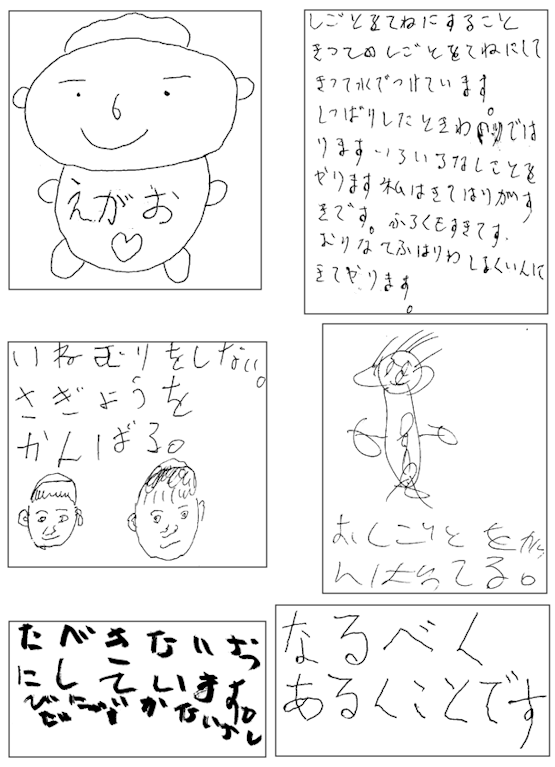 えがお
しごとをてねにすること
きってのしごとをてねにして
きって水でつけています。
しっぱりしたときわ のりでは
ります いろいろなしことを
やります 私はきてはりがす
きです。ふろくもすきです.
むりなてふはりわ しょくいんに
きてやります。
いねむりをしない。
さぎょうを
かんばる。
おしごとをが
んばってる。
たべきないよう
にしています。
なるべく
あるくことです